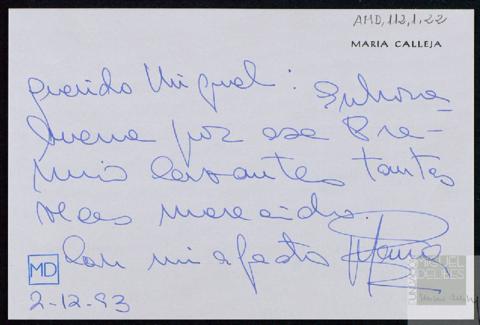 AMD, 112, 1, 22
MARIA CALLEJA
Querido Miguel: Enhora-
buena por ese Pre-
mio Cervantes tantas
veces merecido.
Con mi afecto María
MD
2-12-93
FUNDACIÓN
MIGUEL
DELIBES